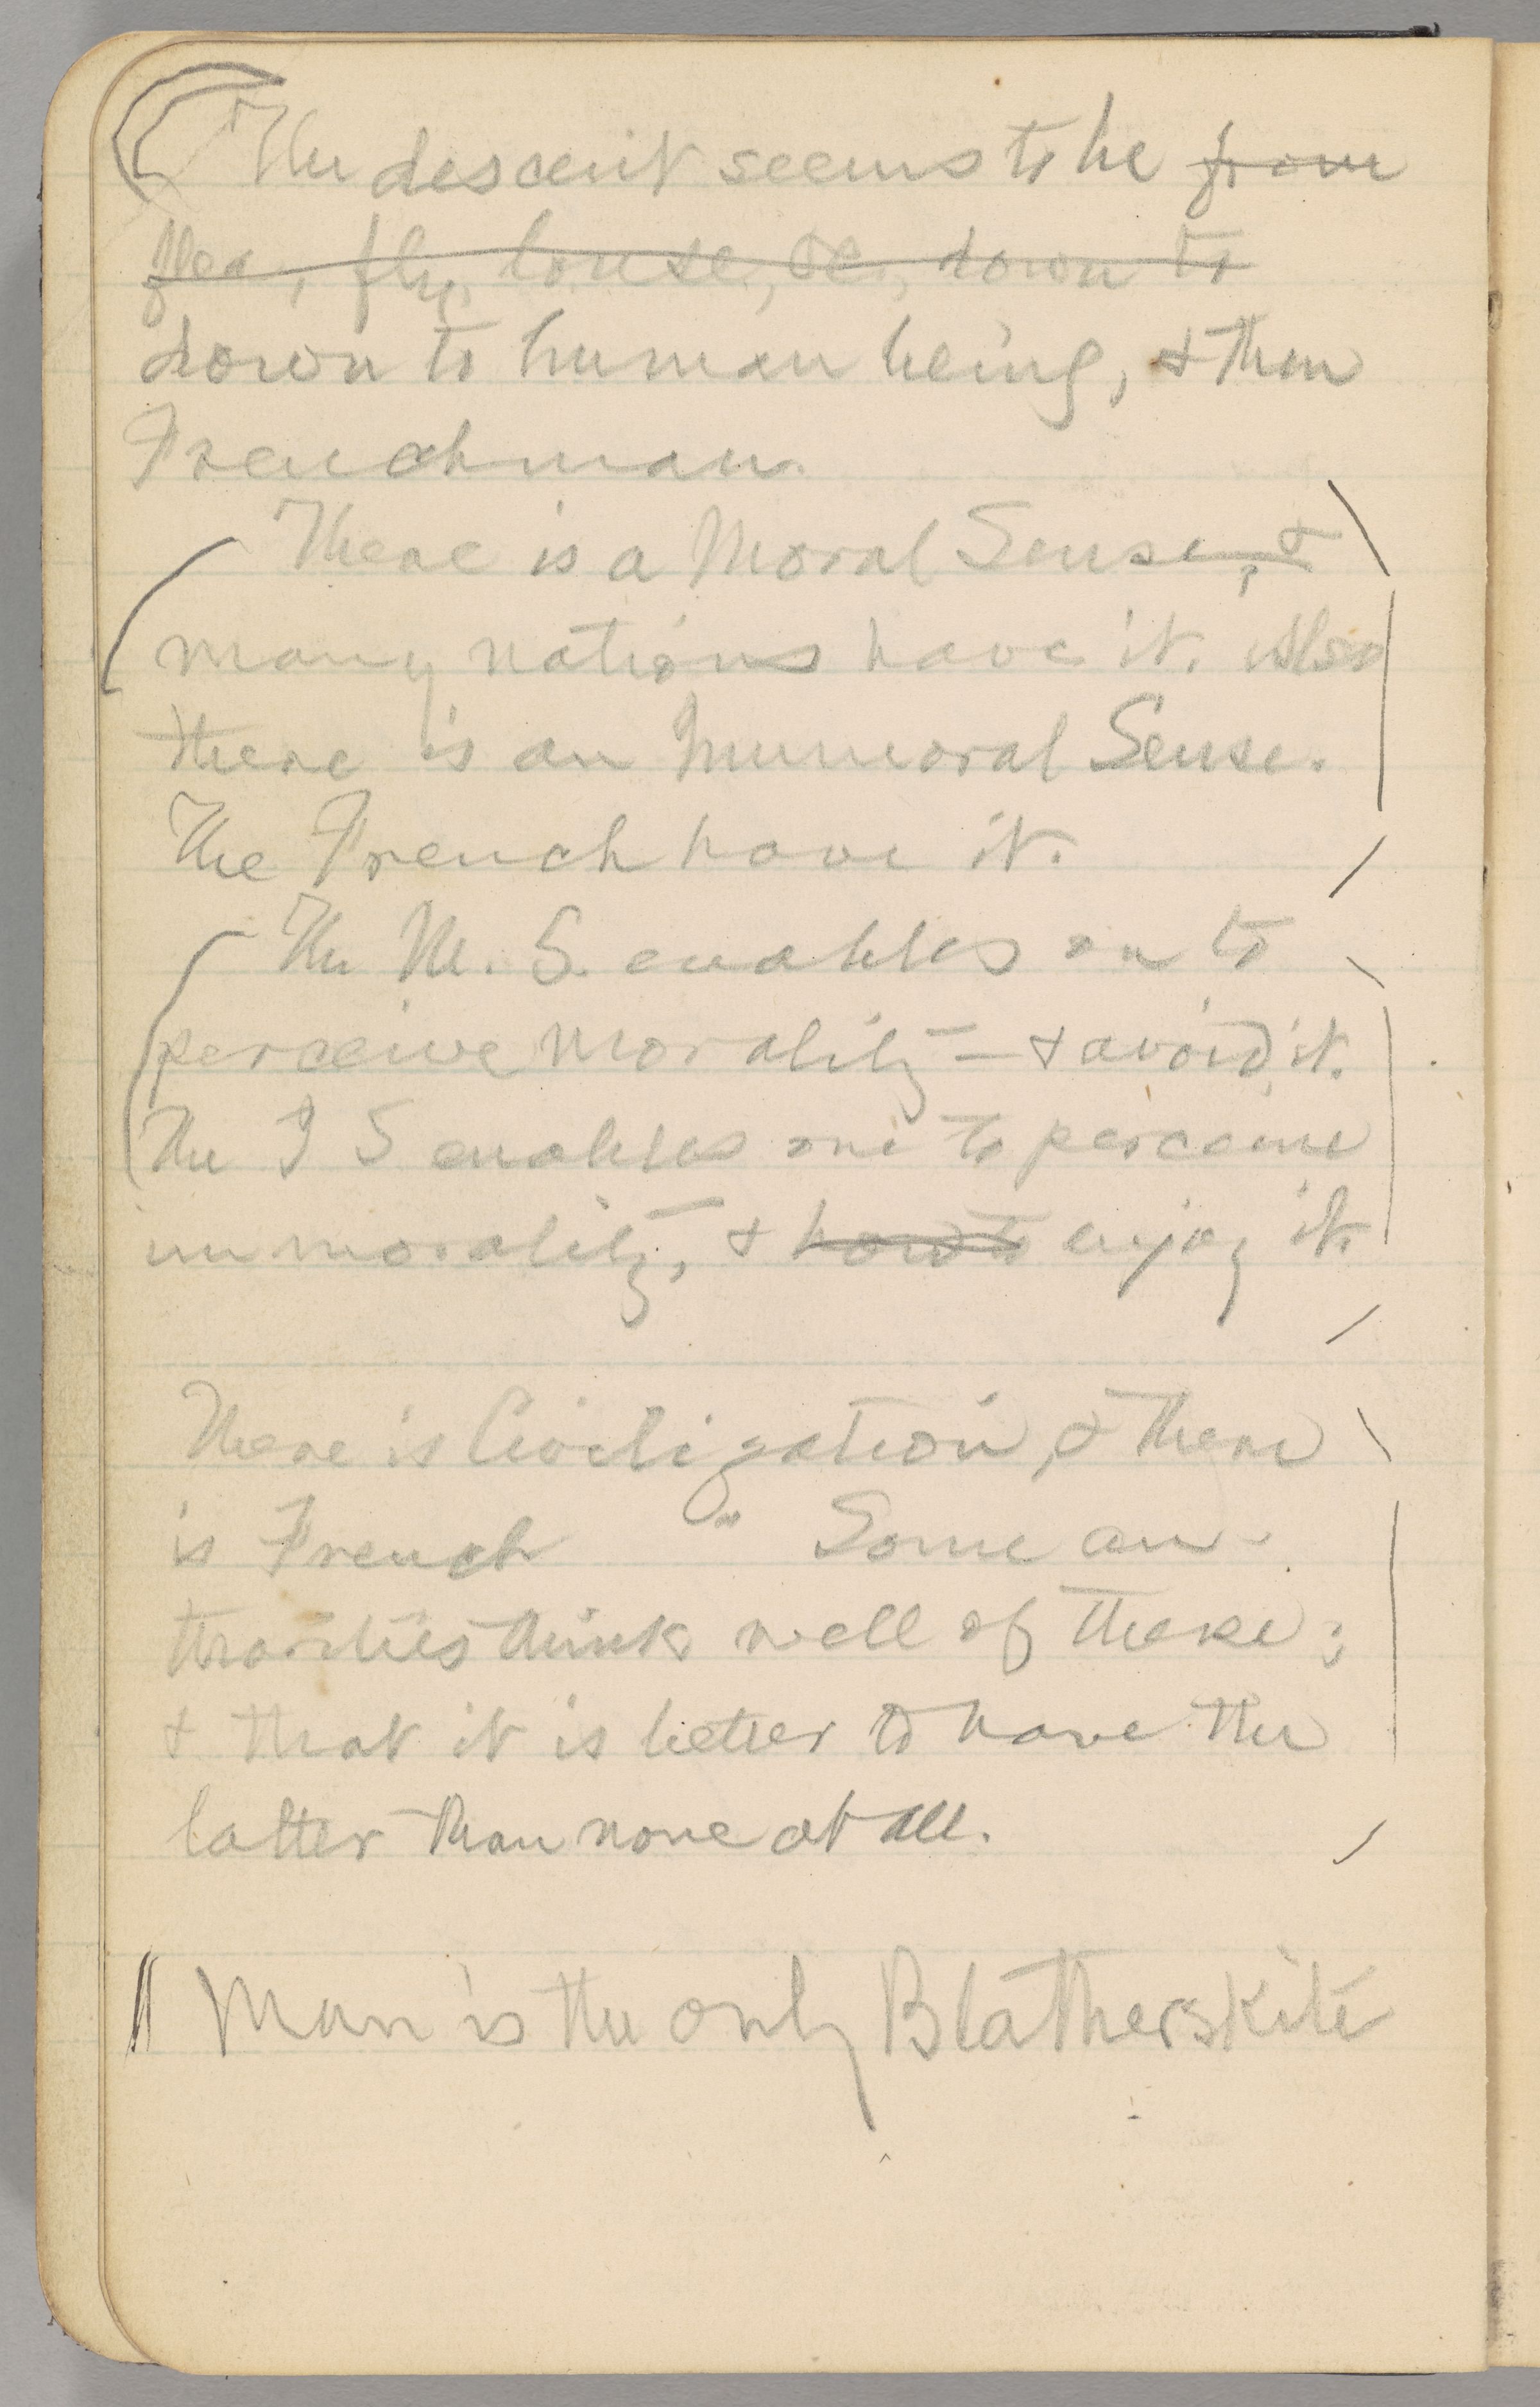 The descent seems to be from
flea, fly, louse, &c, down to
down to human being, & then
Frenchman.
There is a Moral Sense, &
many nations have it. Also
there is an Immoral Sense.
The French have it.
The M. S. enables one to
perceive morality — & avoid it.
The I S enables one to perceive
immorality, & how to enjoy it.
There is Civilization, & there
is French " Some au-
thorities think well of these;
& that it is better to have the
latter than none at all.
Man is the only Blatherskite